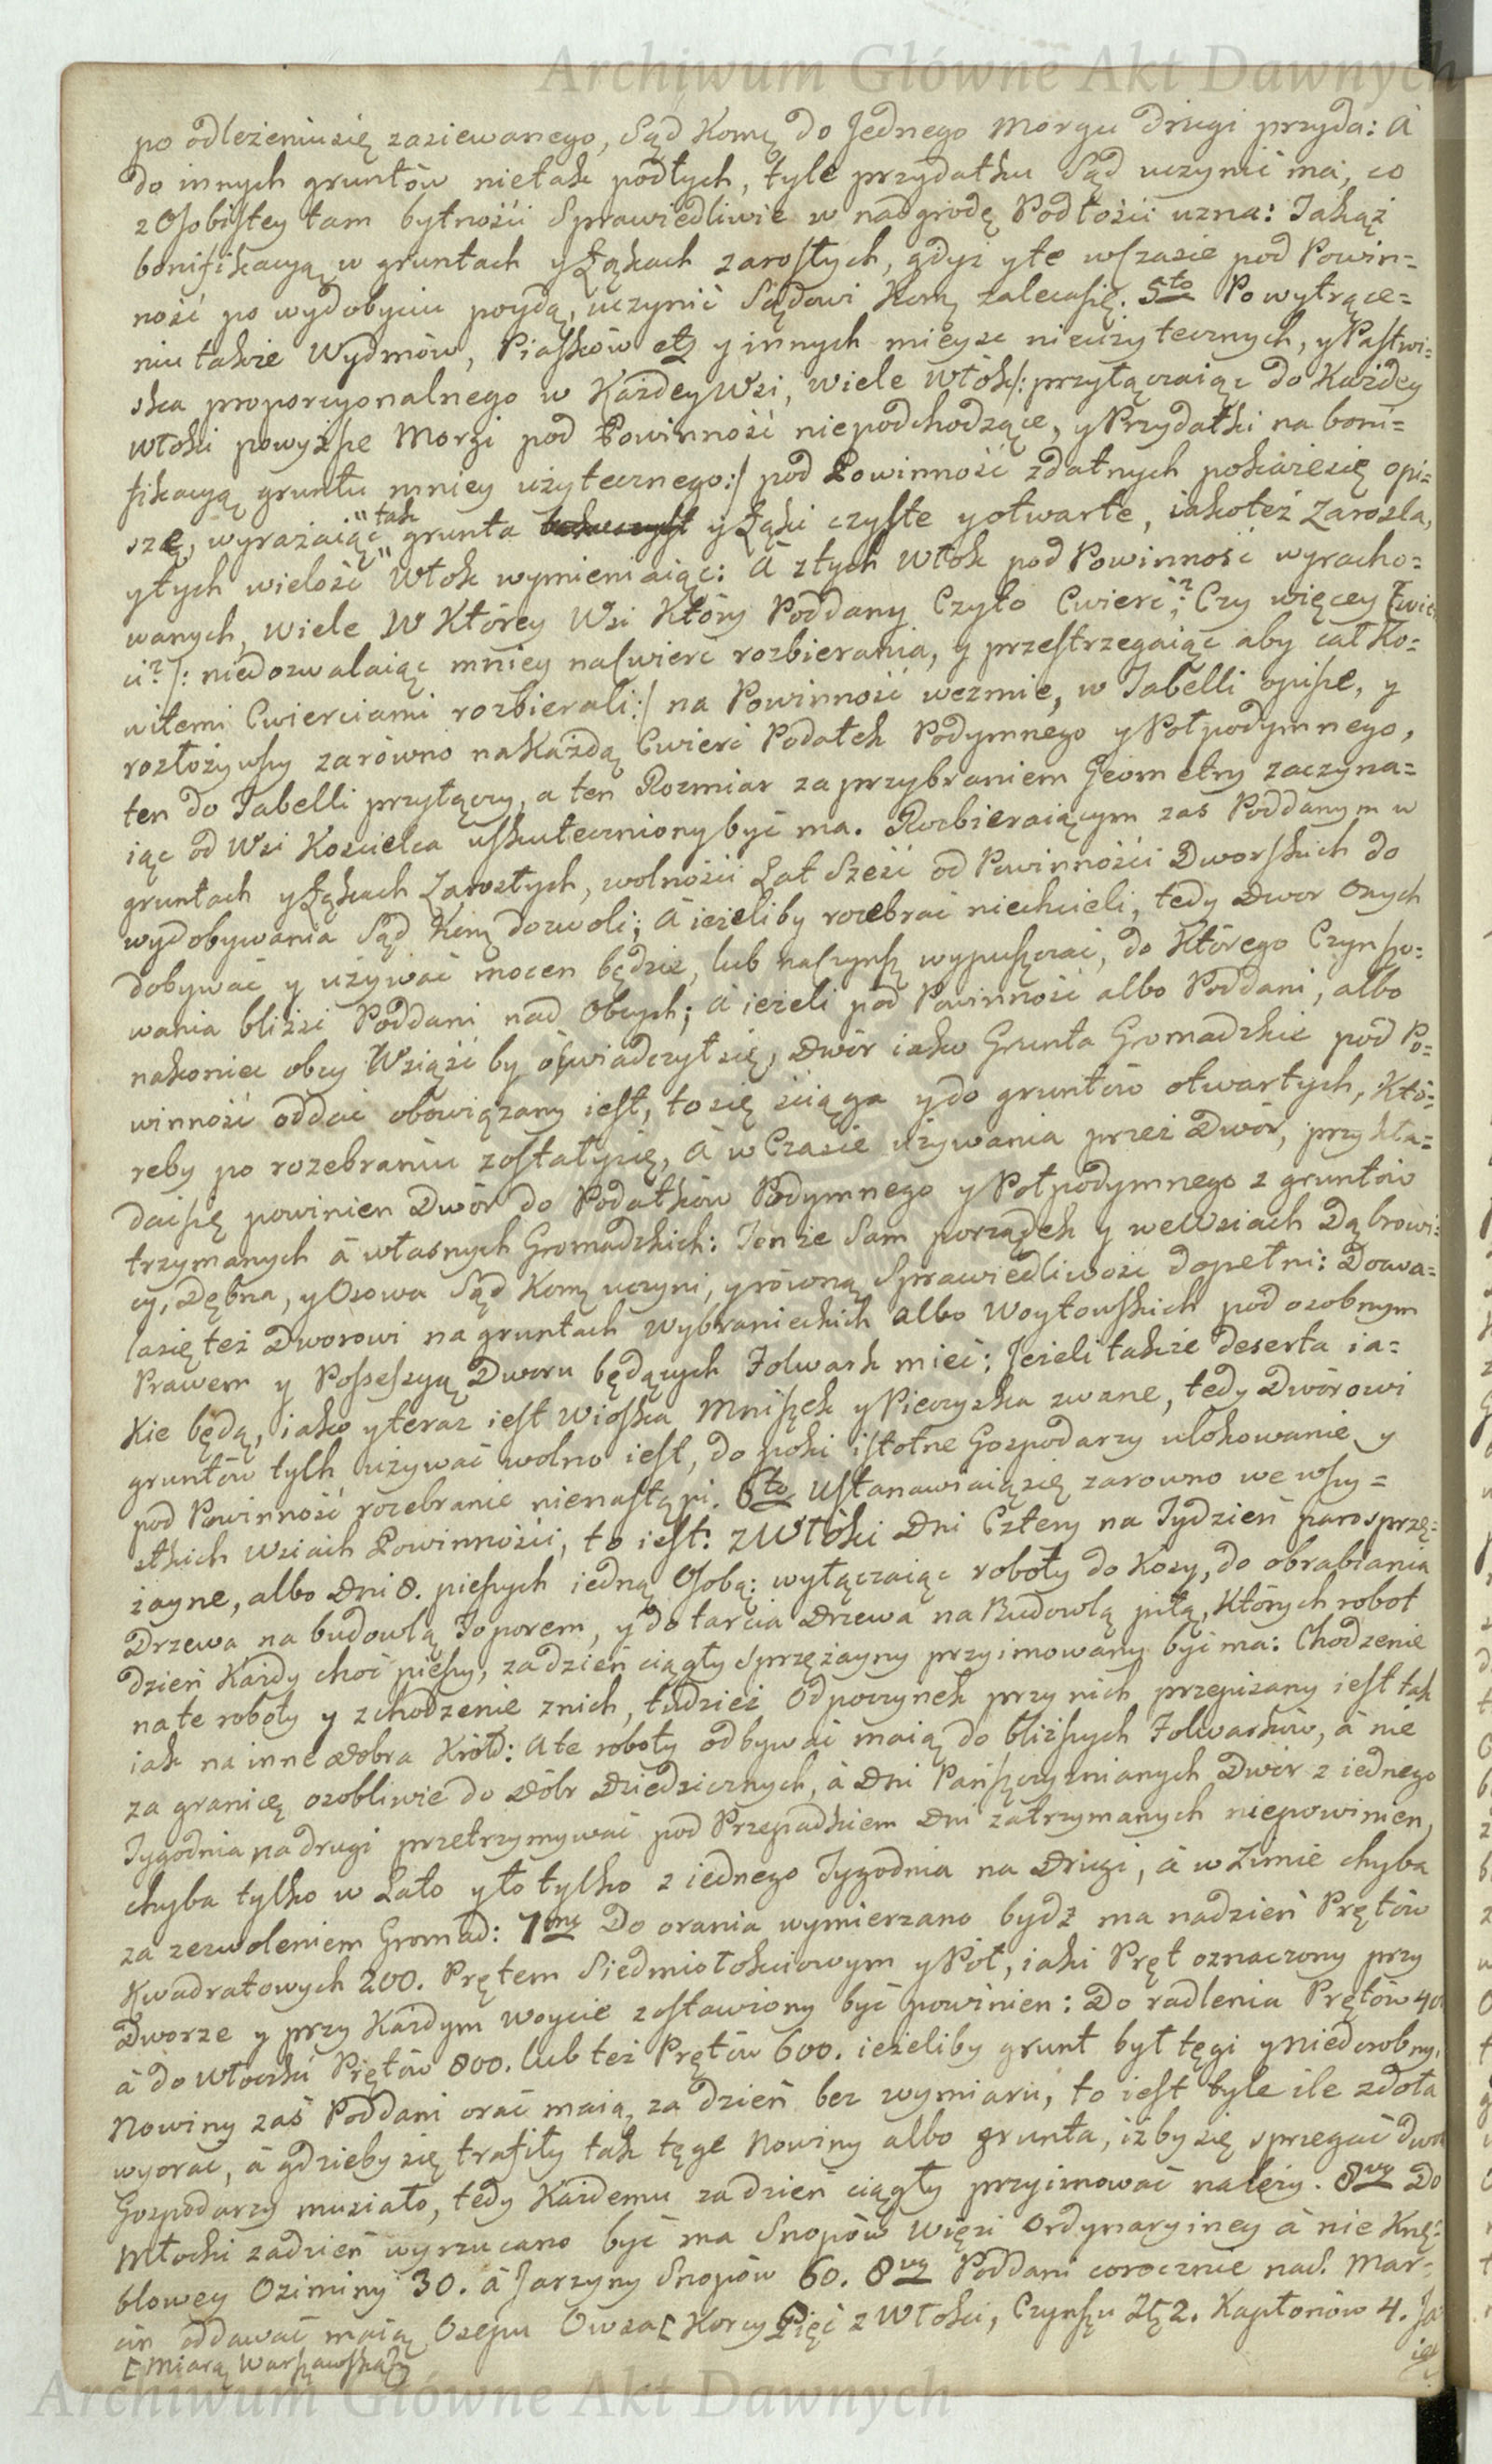 Archiwum Główne Akt Dawnych
po odleżeniu się zasiewanego, Sąd Koms do Jednego Morgu drugi przyda: A
do innych gruntów nietak podłych, tyle przydatku Sąd uczynić ma, co
z Osobistey tam bytności Sprawiedliwie w nadgrodę Podłości uzna: Takąż
bonifikacyą w gruntach y Łąkach zarosłych, gdyż y te w czasie pod Powin=
ność po wydobyciu poydą, uczynić Sądowi Koms zaleca się. 5to Po wytrące=
niu także Wydmów, Piasków etz y innych mieysc nieużytecznych, y Pastwi=
ska proporcyonalnego w Każdey Wsi, wiele Włók /: przyłączaiąc do Każdey
Włoki powyższe Morgi pod Powinność niepodchodzące, y Przydatki na boni=
fikacyą gruntu mniey użytecznego :/ pod Powinność zdatnych pokaże się opi=
sze, wyrażaiąc "tak grunta y Łąki czyste y otwarte, iakoteż Zarosla,
y tych wielość "Włok wymieniaiąc: A z tych Włok pod Powinność wyracho=
wanych, wiele w Którey Wsi Który Poddany Czyto Cwierć? Czy więcey Cwier
ci? /: niedozwalaiąc mniey na Cwierć rozbierania, y przestrzegaiąc aby całko=
witemi Cwierciami rozbierali :/ na Powinność wezmie, w Tabelli opisze, y
rozłożywszy zarówno na Każdą Cwierć Podatek Podymnego y Połpodymnego,
ten do Tabelli przyłączy, a ten Rozmiar za przybraniem Geometry zaczyna=
iąc od Wsi Koscielca uskuteczniony być ma. Rozbieraiącym zas Poddanym w
gruntach y Łąkach Zarosłych, wolności Lat Sześć od Powinności Dworskich do
wydobywania Sąd Koms dozwoli; A ieżeliby rozebrać niechcieli, tedy Dwor onych
dobywać y używać mocen będzie, lub na Czynsz wypuszczać, do Którego Czynszo=
wania bliżsi Poddani nad Obcych; A ieżeli pod Powinność albo Poddani, albo
nakoniec obcy Wziąść by oświadczył się, Dwór iako Grunta Gromadzkie pod Po=
winność oddać obowiązany iest, to się ściąga y do gruntów otwartych, Któ=
reby po rozebraniu zostały się, A w Czasie używania przez Dwór, przykła=
dać się powinien Dwór do Podatków Podymnego y Połpodymnego z gruntów
trzymanych á własnych Gromadzkich: Tenże Sam porządek y we Wsiach Dąbrowi=
cy, Dębna, y Osowa Sąd Koms uczyni, y równą Sprawiedliwość dopełni: Dozwa=
la się też Dworowi na gruntach Wybranieckich albo Woytowskich pod osobnym
Prawem y Possessyą Dworu będących Folwark mieć; Jeżeli także deserta ia=
Kie będą, iako y teraz iest Wioska Mniszek y Pieczyska zwane, tedy Dworowi
gruntów tylk używać wolno iest, do poki istotne Gospodarzy ulokowanie y
pod Powinność rozebranie nienastąpi. 6to Ustanawiaią się zarowno we wszy=
stkich Wsiach Powinności, to iest: z Włóki Dni Cztery na Tydzień parosprzę=
żayne, albo Dni 8. pieszych iedną Osobą: wyłączaiąc roboty do Kosy, do obrabiania
Drzewa na budowlą Toporem, y do tarcia Drzewa na Budowlą piłą, Których robot
dzień Każdy choć pieszy, za dzień ciągły sprzężayny przyimowany być ma: Chodzenie
na te roboty y zchodzenie z nich, tudzież Odpoczynek przy nich przepisany iest tak
iak na inne Dobra Król: A te roboty odbywać maią do bliższych Folwarków, á nie
za granicę osobliwie do Dóbr Dziedzicznych, á Dni Pańszczyznianych Dwór z iednego
Tygodnia na drugi przetrzymywać pod Przepadkiem Dni zatrzymanych niepowinien,
chyba tylko w Lato y to tylko z iednego Tygodnia na Drugi, á w Zimie chyba
za zezwoleniem Gromad: 7mo Do orania wymierzano bydź ma na dzień Prętów
Kwadratowych 200. Prętem Siedmiołokciowym y Poł, iaki Pręt oznaczony przy
Dworze y przy Każdym Woycie zostawiony być powinien: Do radlenia Prętów 400
á do Włoczki Prętów 800. lub też Prętów 600. ieżeliby grunt był tęgi y niedorobny,
Nowiny zaś Poddani orać maią za dzień bez wymiaru, to iest tyle ile zdoła
wyorać, á gdzieby się trafiły tak tęgie Nowiny albo grunta, iżby się sprzegać dwom
Gospodarzy musiało, tedy Każdemu za dzień ciągły przyimować należy. 8vo Do
Młocki za dzień wyrzucano być ma Snopów Więzi Ordynaryiney á nie Knę=
blowey Oziminy 30. á Jarzyny Snopów 60. 8vo Poddani corocznie na S. Mar=
cin oddawać maią Osepu Owsa [ Korcy Pięć z Włoki, Czynszu Zł 2. Kapłonów 4. Ja
[ Miarą Warszawską
iec
Archiwum Główne Akt Dawnych